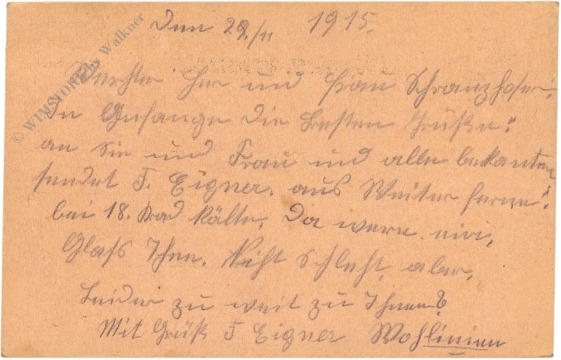 Den 29./11 1915.
Werther Her und Frau Schranzhofer!
In Anfange die besten Grüße!
an Sie und Frau und alle bekanten
sendet F. Eigner. aus Weiter ferne!
bei 18. Krad Kälte, Da were eiń,
Glaß Thee. Nicht Schleht, aber,
Leider zu weit zu Ihnen?
Mit Gruß F Eigner Wohlinien
© WIMStore by Walkner